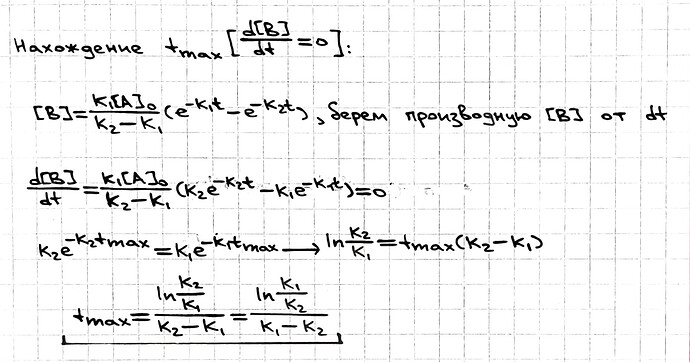 Нахождение t_max [d[B]/dt = 0]:
[B] = K₁[A]₀/(K₂ − K₁) (e^(−K₁t) − e^(−K₂t)), берем производную [B] от dt
d[B]/dt = K₁[A]₀/(K₂ − K₁) (K₂e^(−K₂t) − K₁e^(−K₁t)) = 0
K₂e^(−K₂t max) = K₁e^(−K₁t max) ⟶ ln K₂/K₁ = t max (K₂ − K₁)
t max = (ln K₂/K₁)/(K₂ − K₁) = (ln K₁/K₂)/(K₁ − K₂)